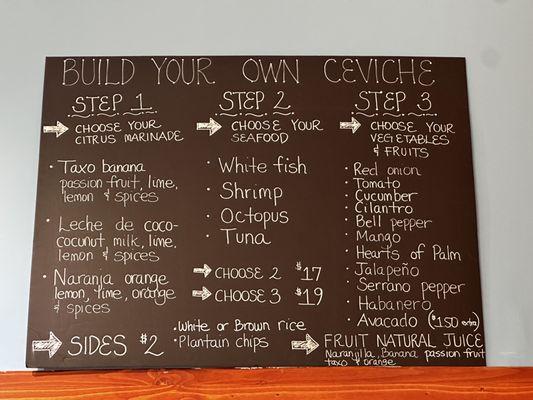 BUILD YOUR OWN CEVICHE
STEP 1
CHOOSE YOUR
CITRUS MARINADE
• Taxo banana
passion fruit, lime,
lemon & spices
• Leche de coco-
coconut milk, lime,
lemon & spices
• Naranja orange
lemon, lime, orange
& spices
STEP 2
CHOOSE YOUR
SEAFOOD
• White fish
• Shrimp
• Octopus
• Tuna
CHOOSE 2 $17
CHOOSE 3 $19
STEP 3
CHOOSE YOUR
VEGETABLES
& FRUITS
• Red onion
• Tomato
• Cucumber
• Cilantro
• Bell pepper
• Mango
• Hearts of Palm
• Jalapeño
• Serrano pepper
• Habanero
• Avacado ($1.50 extra)
SIDES $2
• White or Brown rice
• Plantain chips
FRUIT NATURAL JUICE
Naranjilla, Banana passion fruit
taxo & orange